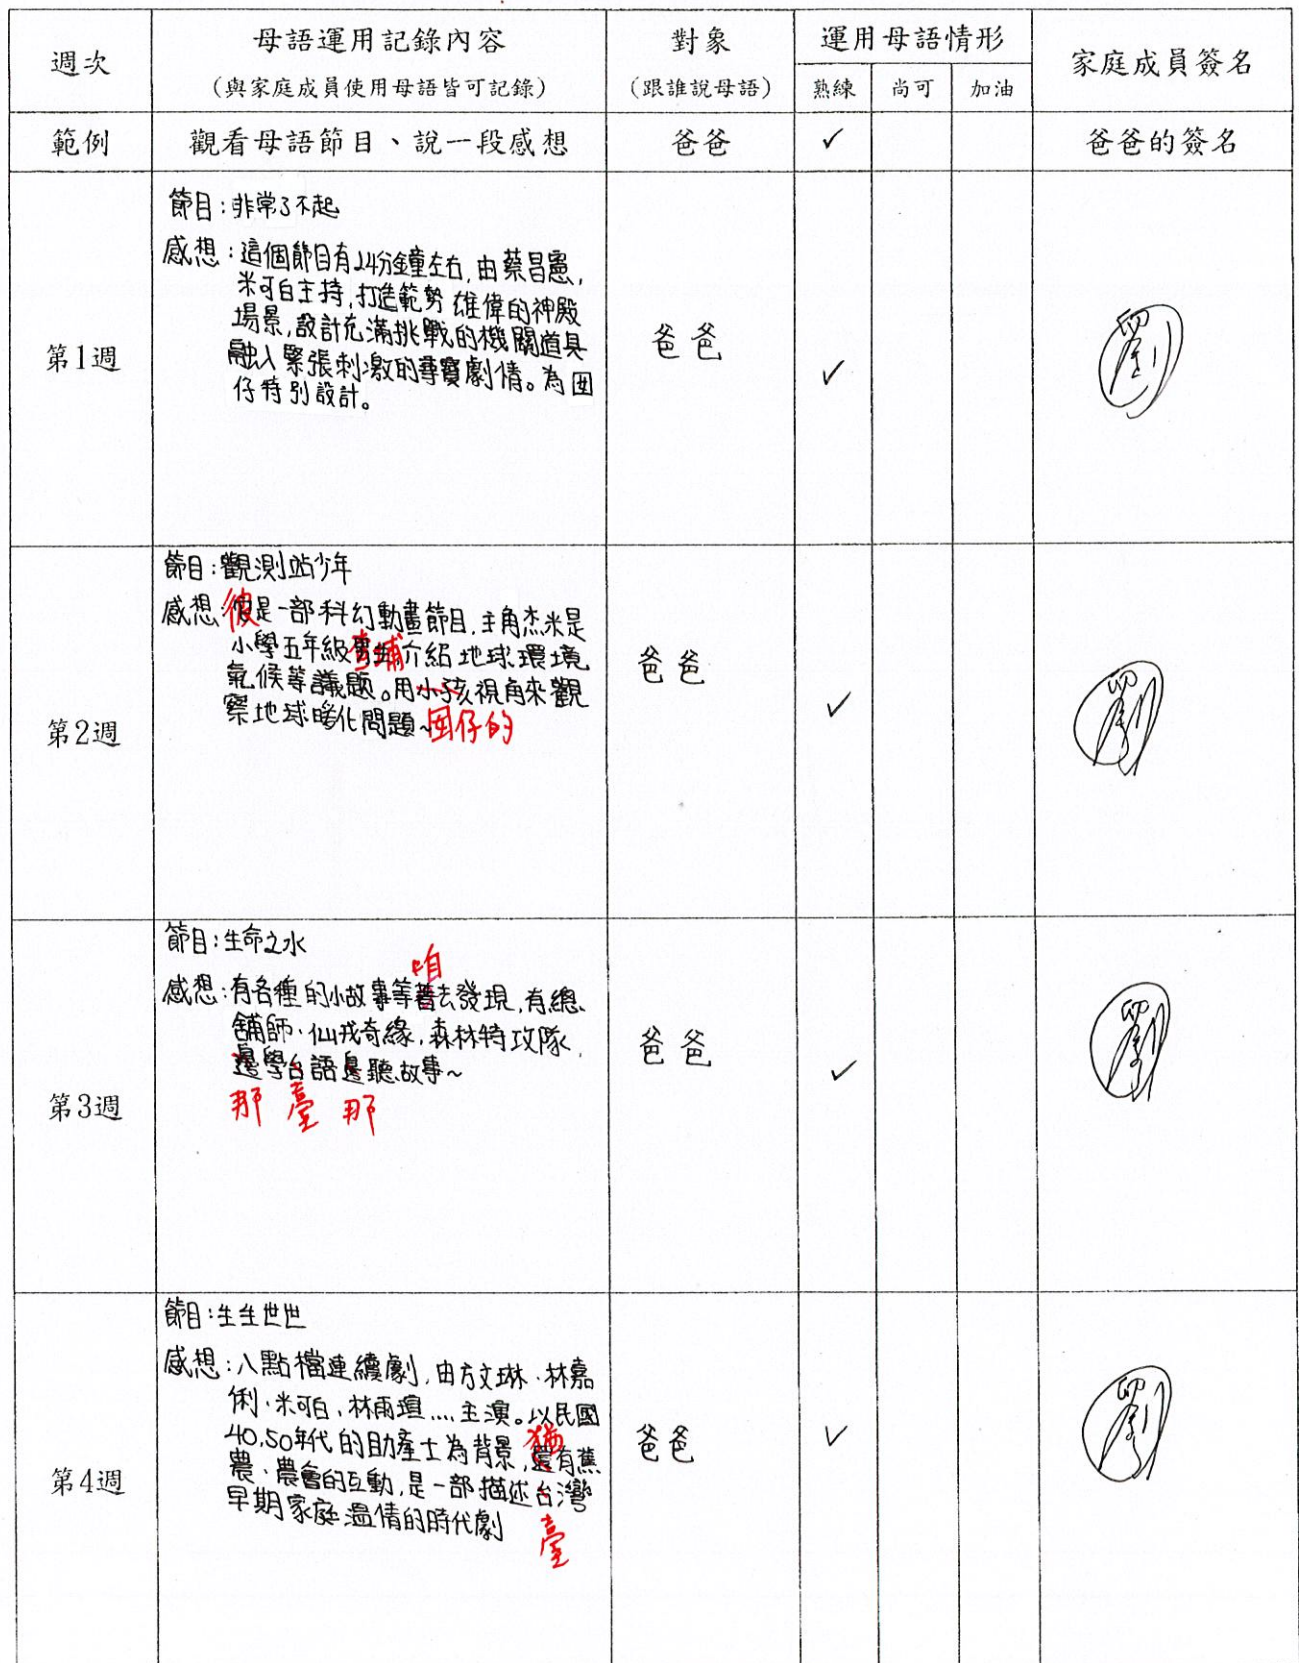 週次
母語運用記錄內容
(與家庭成員使用母語皆可記錄)
對象
(跟誰說母語)
運用母語情形
熟練 尚可 加油
家庭成員簽名
範例 觀看母語節目、說一段感想 爸爸 ✓ 爸爸的簽名
第1週
節目:非常了不起
感想:這個節目有24分鐘左右,由蔡昌憲,
米可白主持,打造範勢雄偉的神殿
場景,設計充滿挑戰的機關道具
融入緊張刺激的尋寶劇情。為囡
仔特別設計。
爸爸
✓
第2週
節目:觀測站少年
感想:彼是一部科幻動畫節目,主角杰米是
小學五年級 查埔 介紹地球環境
氣候等議題。用小孩視角來觀
察地球暖化問題~
囡仔的
爸爸
✓
第3週
節目:生命之水
咱
感想:有各種的小故事等著去發現,有總
舖師.仙戎奇緣.森林特攻隊.
邊學台語邊聽故事~
那 臺 那
爸爸
✓
第4週
節目:生生世世
感想:八點檔連續劇,由方文琳.林嘉
俐.米可白.林雨瑄....主演。以民國
40.50年代的助產士為背景,還有蕉
猶
農、農會的互動,是一部描述台灣
早期家庭溫情的時代劇
臺
爸爸
✓